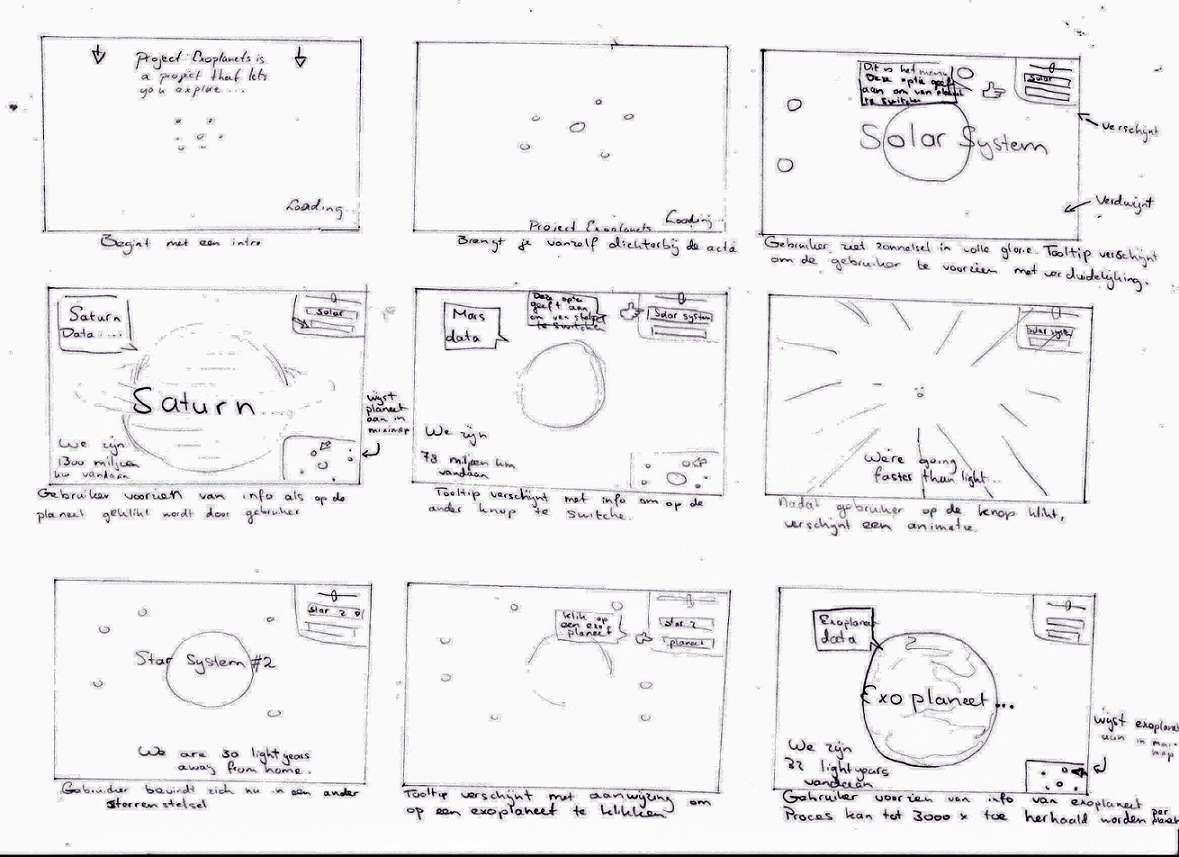 Project Exoplanets is
a project that lets
you explore ...
Loading...
Begint met een intro
Project Exoplanets
Loading..
Brengt je vanzelf dichterbij de actá
Dit is het menu
Deze optie geeft
aan om van planeet
te switchen
Solar
Solar System
Verschijnt
Verdwijnt
Gebruiker ziet zonnelsel in volle glorie. Tooltip verschijnt
om de gebruiker te voorzien met verduidelijking.
Saturn
Data ...
Solar
Saturn
We zijn
1300 miljoen
km vandaan
wijst
planeet
aan in
minimap
Gebruiker voorzien van info als op de
planeet geklikt wordt door gebruiker
Mars
data
Deze optie
geeft aan
om van stelsel
te switchen
Solar system
We zijn
78 miljoen km
vandaan
Tooltip verschijnt met info om op de
ander knop te switche.
Solar syst
We're going
faster than light...
Nadat gebruiker op de knop klikt,
verschijnt een animatie.
Star 2
Star System #2
We are 30 lightyears
away from home.
Gebruiker bevindt zich nu in een ander
sterrenstelsel
Klik op
een exo
planeet
Star 2
planeet
Tooltip verschijnt met aanwijzing om
op een exoplaneet te klikken
Exoplaneet
data
Exoplaneet...
We zijn
32 lightyears
vandaan
wijst exoplaneet
aan in mini-
map
Gebruiker voorzien van info van exoplaneet
Proces kan tot 3000 x toe herhaald worden per
planeet